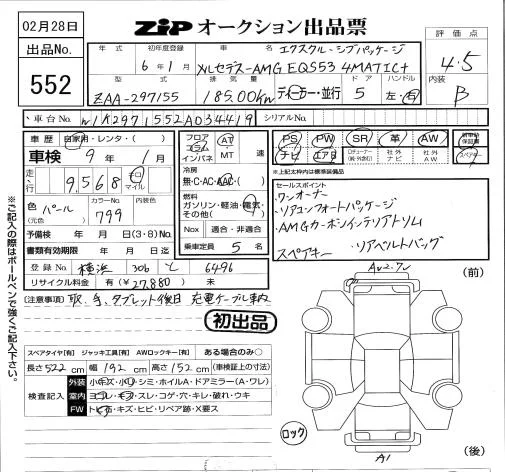 02月28日
出品No.
552
ZiP オークション出品票
評価点
4.5
内装
B
年式 初年度登録 車名
6年1月 メルセデス-AMG EQS53 4MATIC+
エクスクルーシブパッケージ
型式 排気量 ドア ハンドル
ZAA-297155 185.00kw ディーラー・並行 5 左・右
車台No. W1K2971552A034419 シリアルNo.
車歴 自家用・レンタ・( )
車検 9年 1月
走行 9,568 キロ マイル
色(元色) パール カラーNo. 799 内装色
予備検 年 月 日(3・8)No.
書類有効期限 年 月 日
登録No. 横浜 306 と 6496
リサイクル料金 有(¥27,880) 未
フロア コラム インパネ AT MT 速
冷房 無・C・AC・AAC・( )
燃料 ガソリン・軽油・電気・その他( )
Nox 適合・非適合
乗車定員 5 名
PS PW SR 革 AW
ナビ エアB
※上記太枠内は標準装備品
セールスポイント
ワンオーナー
・リアコンフォートパッケージ
・AMGカーボンインテリアトリム
スペアキー ・リアベルトバッグ
(注意事項) 取、手、タブレット後日 充電ケーブル車内
初出品
※ご記入の際はボールペンで強くご記入下さい。
スペアタイヤ[有] ジャッキ工具[有] AWロックキー[有] ある場合のみ○
長さ522cm 幅192cm 高さ152cm (車検証上の寸法)
検査記入
外装 小キズ・小凹・シミ・ホイルA・ドアミラー(A・ワレ)
室内 ヨゴレ・キズ・スレ・コゲ・穴・キレ・破れ・ウキ
FW トビ石・キズ・ヒビ・リペア跡・X要ス
(前)
ロック
A1
(後)